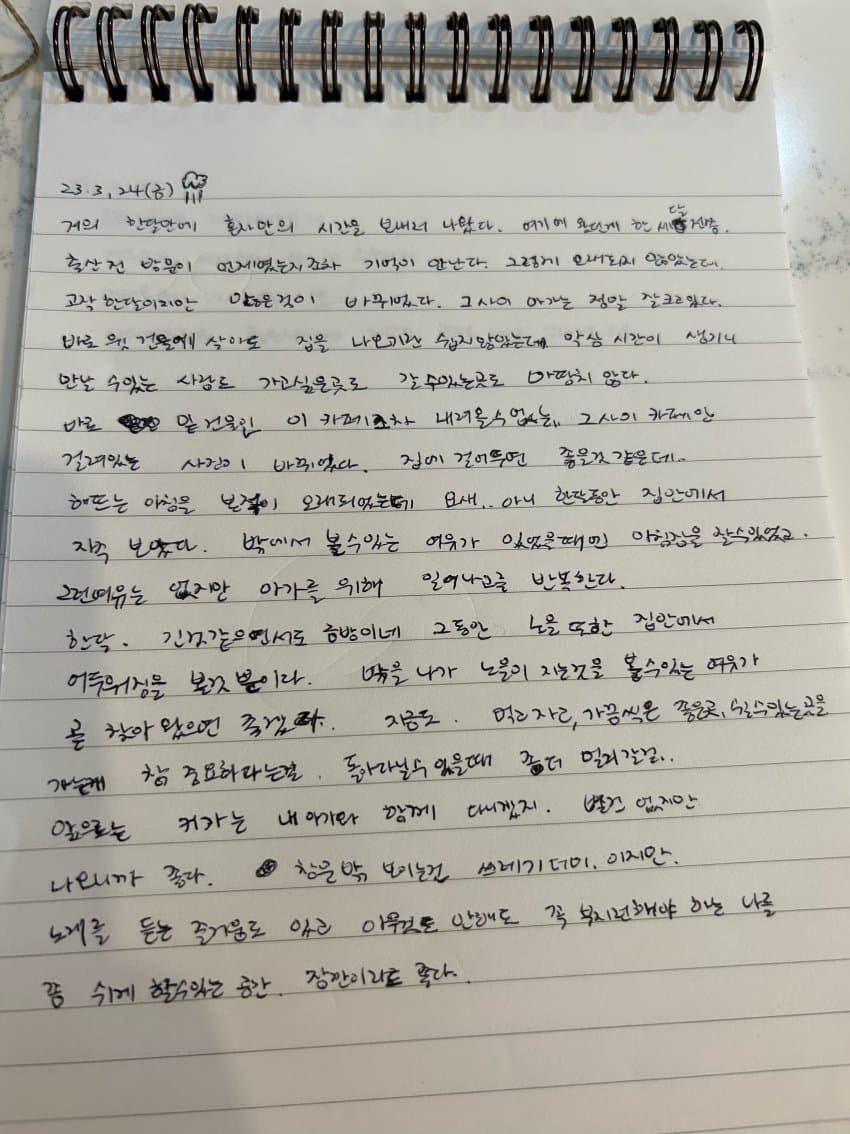 23.3.24(금)
거의 한달만에 혼자만의 시간을 보내러 나왔다. 여기에 왔던게 한 세달 전쯤.
출산 전 방문이 언제였는지조차 기억이 안난다. 그렇게 오래되지 않았는데.
고작 한달이지만 많은것이 바뀌었다. 그사이 아가는 정말 잘크고있다.
바로 윗 건물에 살아도 집을 나오기란 쉽지않았는데, 막상 시간이 생기니
만날 수있는 사람도 가고싶은곳도 갈 수있는곳도 마땅치 않다.
바로 밑 건물인 이 카페조차 내려올수없는.. 그사이 카페안
걸려있는 사진이 바뀌었다. 집에 걸어두면 좋을것 같은데..
해뜨는 아침을 본적이 오래되었는데 요새.. 아니 한달동안 집안에서
자주 보았다. 밖에서 볼수있는 여유가 있었을때면 아침잠을 잘수있었고.
그런여유는 없지만 아가를 위해 일어나고를 반복한다.
한달. 긴것같으면서도 금방이네 그동안 노을 또한 집안에서
어두워짐을 본것 뿐이다. 밖을 나가 노을이 지는것을 볼수있는 여유가
곧 찾아 왔으면 좋겠다. 지금도. 먹고 자고, 가끔씩은 좋은곳, 쉬일수있는곳을
가는게 참 중요하다는걸. 돌아다닐수 있을때 좀더 멀리갈걸..
앞으로는 커가는 내 아가와 함께 다니겠지. 별건 없지만
나오니까 좋다. 창문밖 보이는건 쓰레기더미. 이지만.
노래를 듣는 즐거움도 있고 아무것도 안해도 꼭 부지런해야 하는 나를
쫌 쉬게 할수있는 공간. 잠깐이라도 좋다.